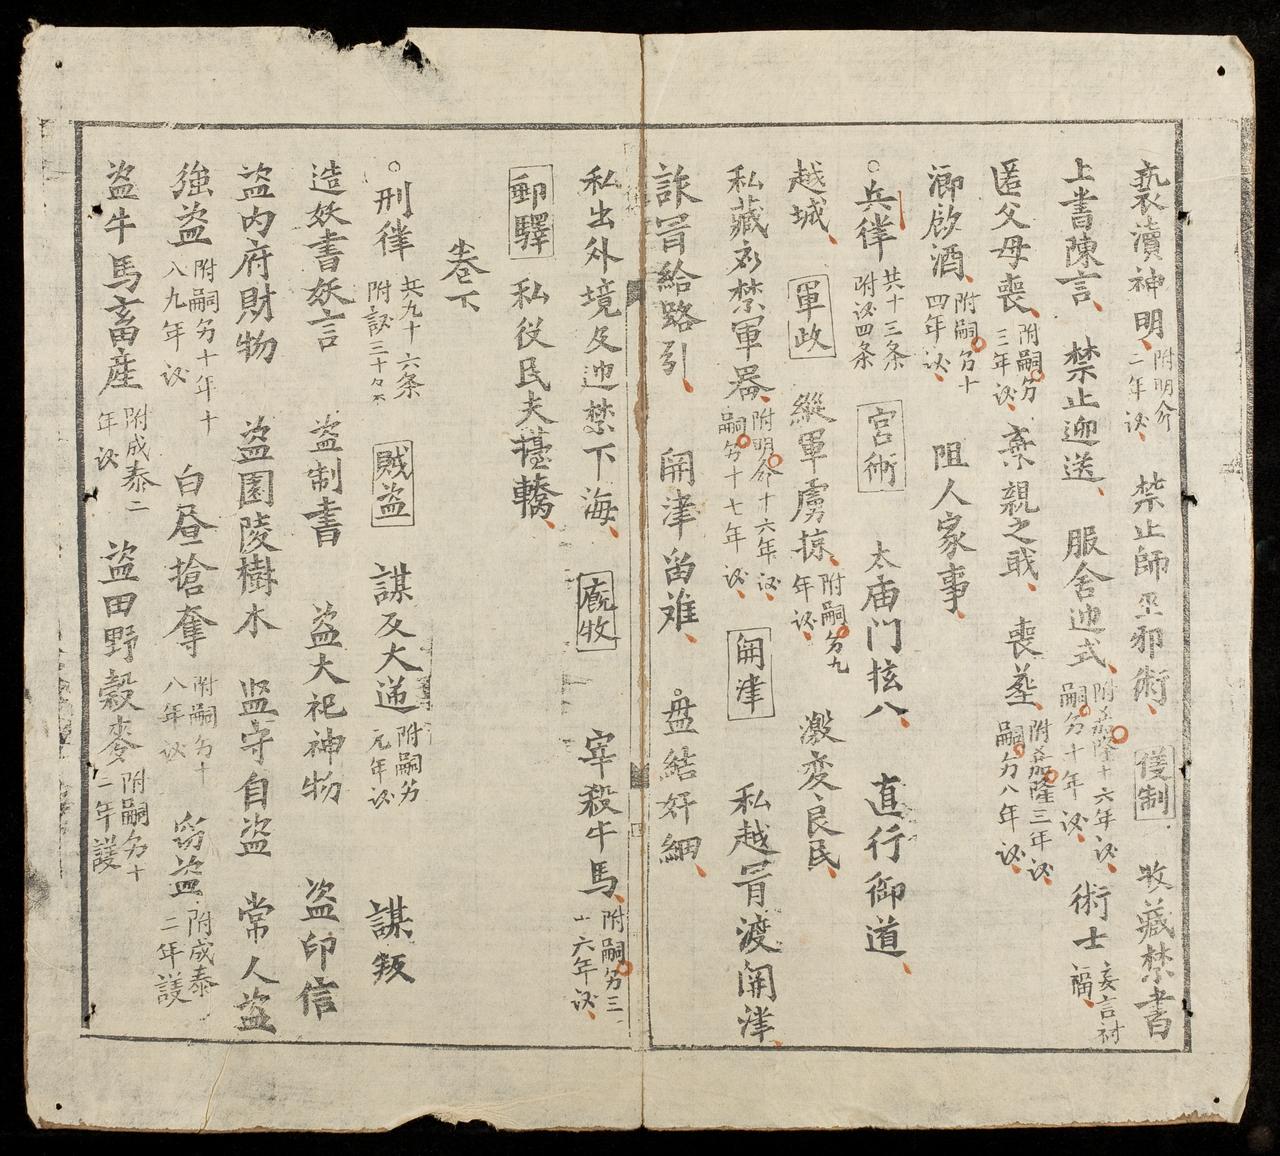 褻瀆神明 附明命二年議 禁止師巫邪術 儀制 收藏禁書
上書陳言 禁止迎送 服舍違式 附嘉隆十六年議嗣分十年議 術士 妄言禍福
匿父母喪 附嗣分三年議 棄親之 喪葬 附嘉隆三年議嗣分八年議
鄉飲酒 附嗣分十四年議 阻人家事
○兵律 共十三条附議四条 宮衛 太庙门 直行御道
越城 軍政 縱軍虜掠 附嗣分九年議 激変良民
私藏应禁軍器 附明命十六年議嗣分十七年議 関津 私越冒渡関津
詐冒給路引 関津畄难 盘結奸細
私出外境及违禁下海 廐牧 宰殺牛馬 附嗣分三十六年議
郵驛 私役民夫擡轎
卷下
○刑律 共九十六条附議三十 賊盗 謀反大逆 附嗣分元年議 謀叛
造妖書妖言 盗制書 盗大祀神物 盗印信
盗内府財物 盗園陵樹木 监守自盗 常人盗
強盗 附嗣分十年十八九年議 白昼搶奪 附嗣分十八年議 窃盗 附成泰二年議
盗牛馬畜産 附成泰二年議 盗田野穀麥 附嗣分十二年議